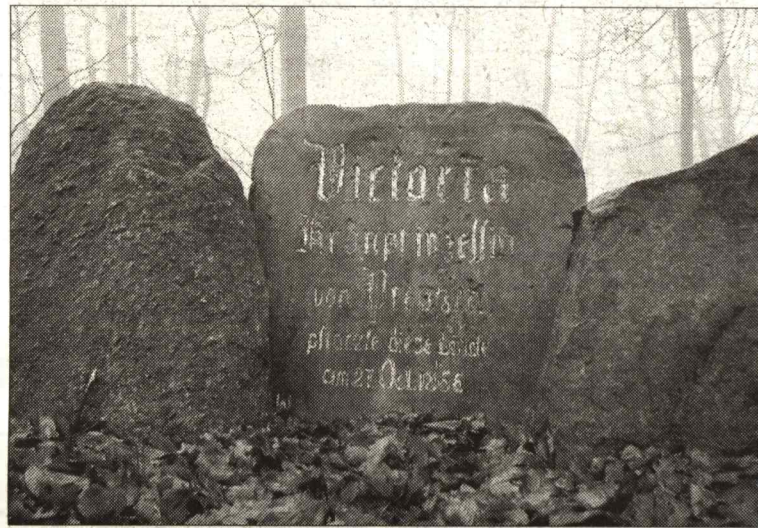 Victoria
Kronprinzessin
von Preußen
pflanzte diese Linde
am 27. Oct.